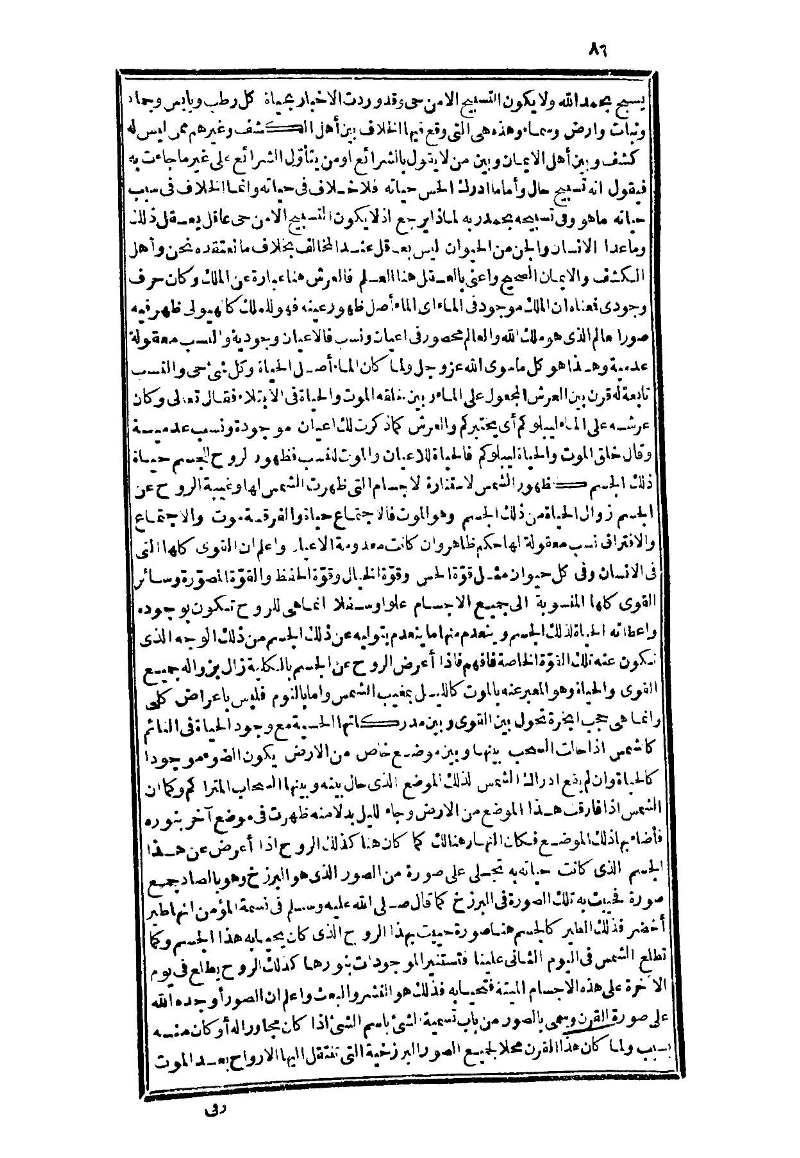 ٨٦
يسبح بحمد الله ولا يكون التسبيح الا من حى وقد وردت الاخبار بحياة كل رطب ويابس وجماد
ونبات وارض وسماء وهذه هى التى وقع فيها الخلاف بين أهل الكشف وغيرهم ممن ليس له
كشف وبين أهل الايمان وبين من لا يقول بالشرائع او من يتأول الشرائع على غير ما جاءت به
فيقول انه تسبيح حال وأما ما ادرك الحس حياته فلا خلاف فى حياته وانما الخلاف فى سبب
حياته ما هو وفى تسبيحه بحمد ربه لماذا يرجع اذ لا يكون التسبيح الا من حى عاقل يعقل ذلك
وما عدا الانسان والجن من الحيوان ليس بعاقل عند المخالف بخلاف ما نعتقده نحن وأهل
الكشف والايمان الصحيح واعنى بالعقل هنا العلم فالعرش هنا عبارة عن الملك وكان حرف
وجودى فمعناه ان الملك موجود فى الماء اى الماء أصل ظهور عينه فهو للملك كالهيولى ظهر فيه
صور العالم الذى هو ملك الله والعالم محصور فى اعيان ونسب فالاعيان وجودية والنسب معقولة
عدمية وهذا هو كل ما سوى الله عز وجل ولما كان الماء أصل الحياة وكل شئ حى والنسب
تابعة له قرن بين العرش المجعول على الماء وبين خلقه الموت والحياة فى الابتلاء فقال تعالى وكان
عرشه على الماء ليبلوكم أى يختبركم والعرش كما ذكرت لك اعيان موجودة ونسب عدمية
وقال خلق الموت والحياة ليبلوكم فالحياة للاعيان والموت للنسب فظهور الروح للجسم حياة
ذلك الجسم كظهور الشمس لاستنارة الاجسام التى ظهرت الشمس لها وغيبة الروح عن
الجسم زوال الحياة من ذلك الجسم وهو الموت فالاجتماع حياة والفرقة موت والاجتماع
والافتراق نسب معقولة لها حكم ظاهر وان كانت معدومة الاعيان واعلم ان القوى كلها التى
فى الانسان وفى كل حيوان مثل قوّة الحس وقوّة الخيال وقوّة الحفظ والقوّة المصوّرة وسائر
القوى كلها المنسوبة الى جميع الاجسام علوا وسفلا انما هى للروح تكون بوجوده
واعطائه الحياة لذلك الجسم وينعدم منها ما ينعدم بتوليه عن ذلك الجسم من ذلك الوجه الذى
تكون عنه تلك القوّة الخاصة فافهم فاذا أعرض الروح عن الجسم بالكلية زال بزواله جميع
القوى والحياة وهو المعبر عنه بالموت كالليل بمغيب الشمس واما بالنوم فليس باعراض كلى
وانما هى حجب ابخرة تحول بين القوى وبين مدركاتها الحسية مع وجود الحياة فى النائم
كالشمس اذا حالت السحب بينها وبين موضع خاص من الارض يكون الضوء موجودا
كالحياة وان لم يقع ادراك الشمس لذلك الموضع الذى حال بينه وبينها السحاب المتراكم وكما ان
الشمس اذا فارقت هذا الموضع من الارض وجاء الليل بدلا منه ظهرت فى موضع آخر بنوره
فأضاء بها ذلك الموضع فكان النهار هنالك كما كان هنا كذلك الروح اذا أعرض عن هذا
الجسم الذى كانت حياته به تجلى على صورة من الصور الذى هو البرزخ وهو بالصاد جمع
صورة فحييت به تلك الصورة فى البرزخ كما قال صلى الله عليه وسلم فى نسمة المؤمن انها طير
أخضر فذلك الطير كالجسم هنا صورة حييت بهذا الروح الذى كان يحيى به هذا الجسم وكما
تطلع الشمس فى اليوم الثانى علينا فتستنير الموجودات بنورها كذلك الروح يطلع فى يوم
الآخرة على هذه الاجسام الميتة فتحيا به فذلك هو النشر والبعث واعلم ان الصور أوجده الله
على صورة القرن وسمى بالصور من باب تسمية الشئ باسم الشئ اذا كان مجاورا له أو كان منه
بسبب ولما كان هذا القرن محلا لجميع الصور البرزخية التى تنتقل اليها الارواح بعد الموت
وفى